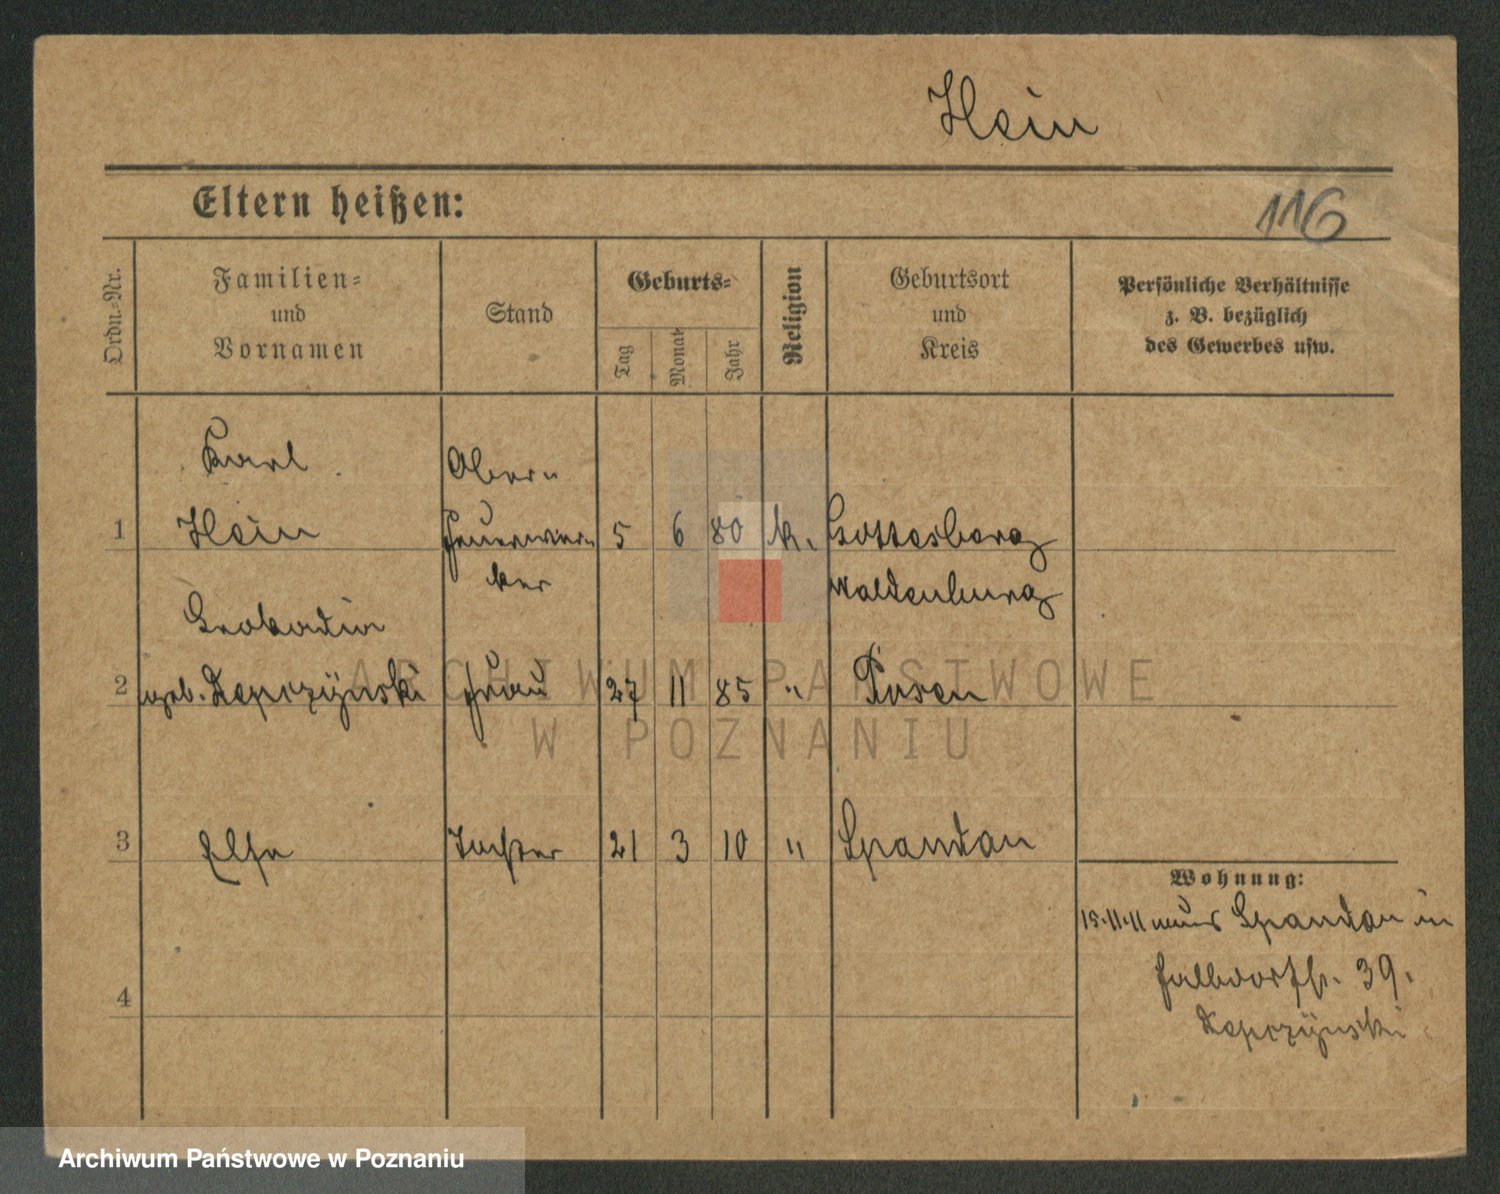 Hein
Eltern heißen:
116
Ordn.-Nr.
Familien-
und
Vornamen
Stand
Geburts-
Tag
Monat
Jahr
Religion
Geburtsort
und
Kreis
Persönliche Verhältnisse
z. B. bezüglich
des Gewerbes usw.
Karl
Ober-
1 Hein Feuerwer- 5 6 80 k. Gottesberg
ker Waldenburg
Leokadia
2 geb. Kopczÿnski Frau 27 11 85 " Posen
3 Elsa Tochter 21 3 10 " Spandau
Wohnung:
15.11.11 Spandau in
39.
4
Kopczÿnski
ARCHIWUM PAŃSTWOWE
W POZNANIU
Archiwum Państwowe w Poznaniu